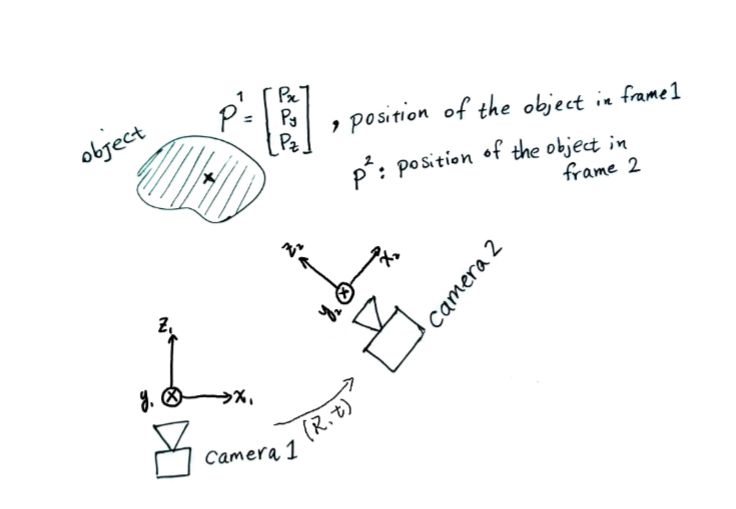 object
P¹ = [Px Py Pz] , position of the object in frame 1
P² : position of the object in
frame 2
z₂
x₂
y₂
camera 2
z₁
y₁
x₁
(R, t)
camera 1